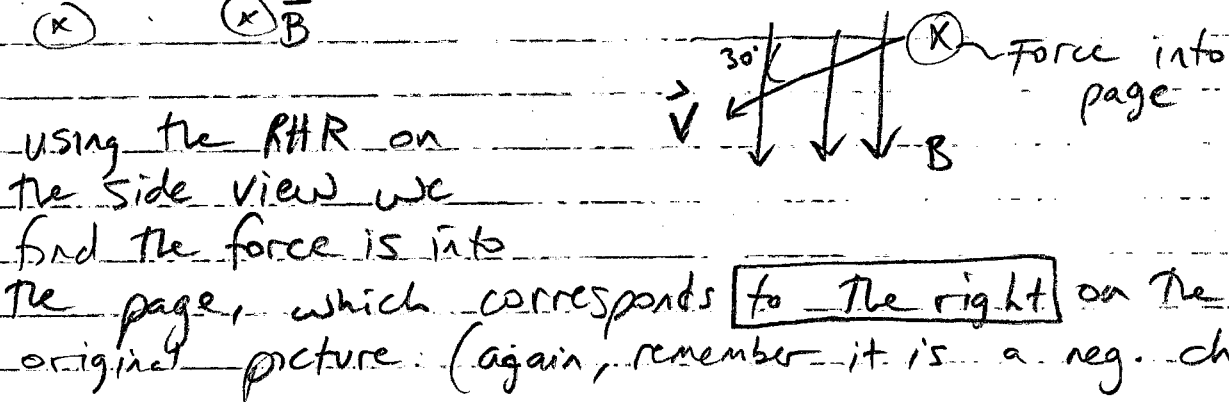 (x) (x) B
30°
(x) Force into
page
V
B
using the RHR on
the side view we
find the force is into
the page, which corresponds to the right on the
original picture. (again, remember it is a neg. ch